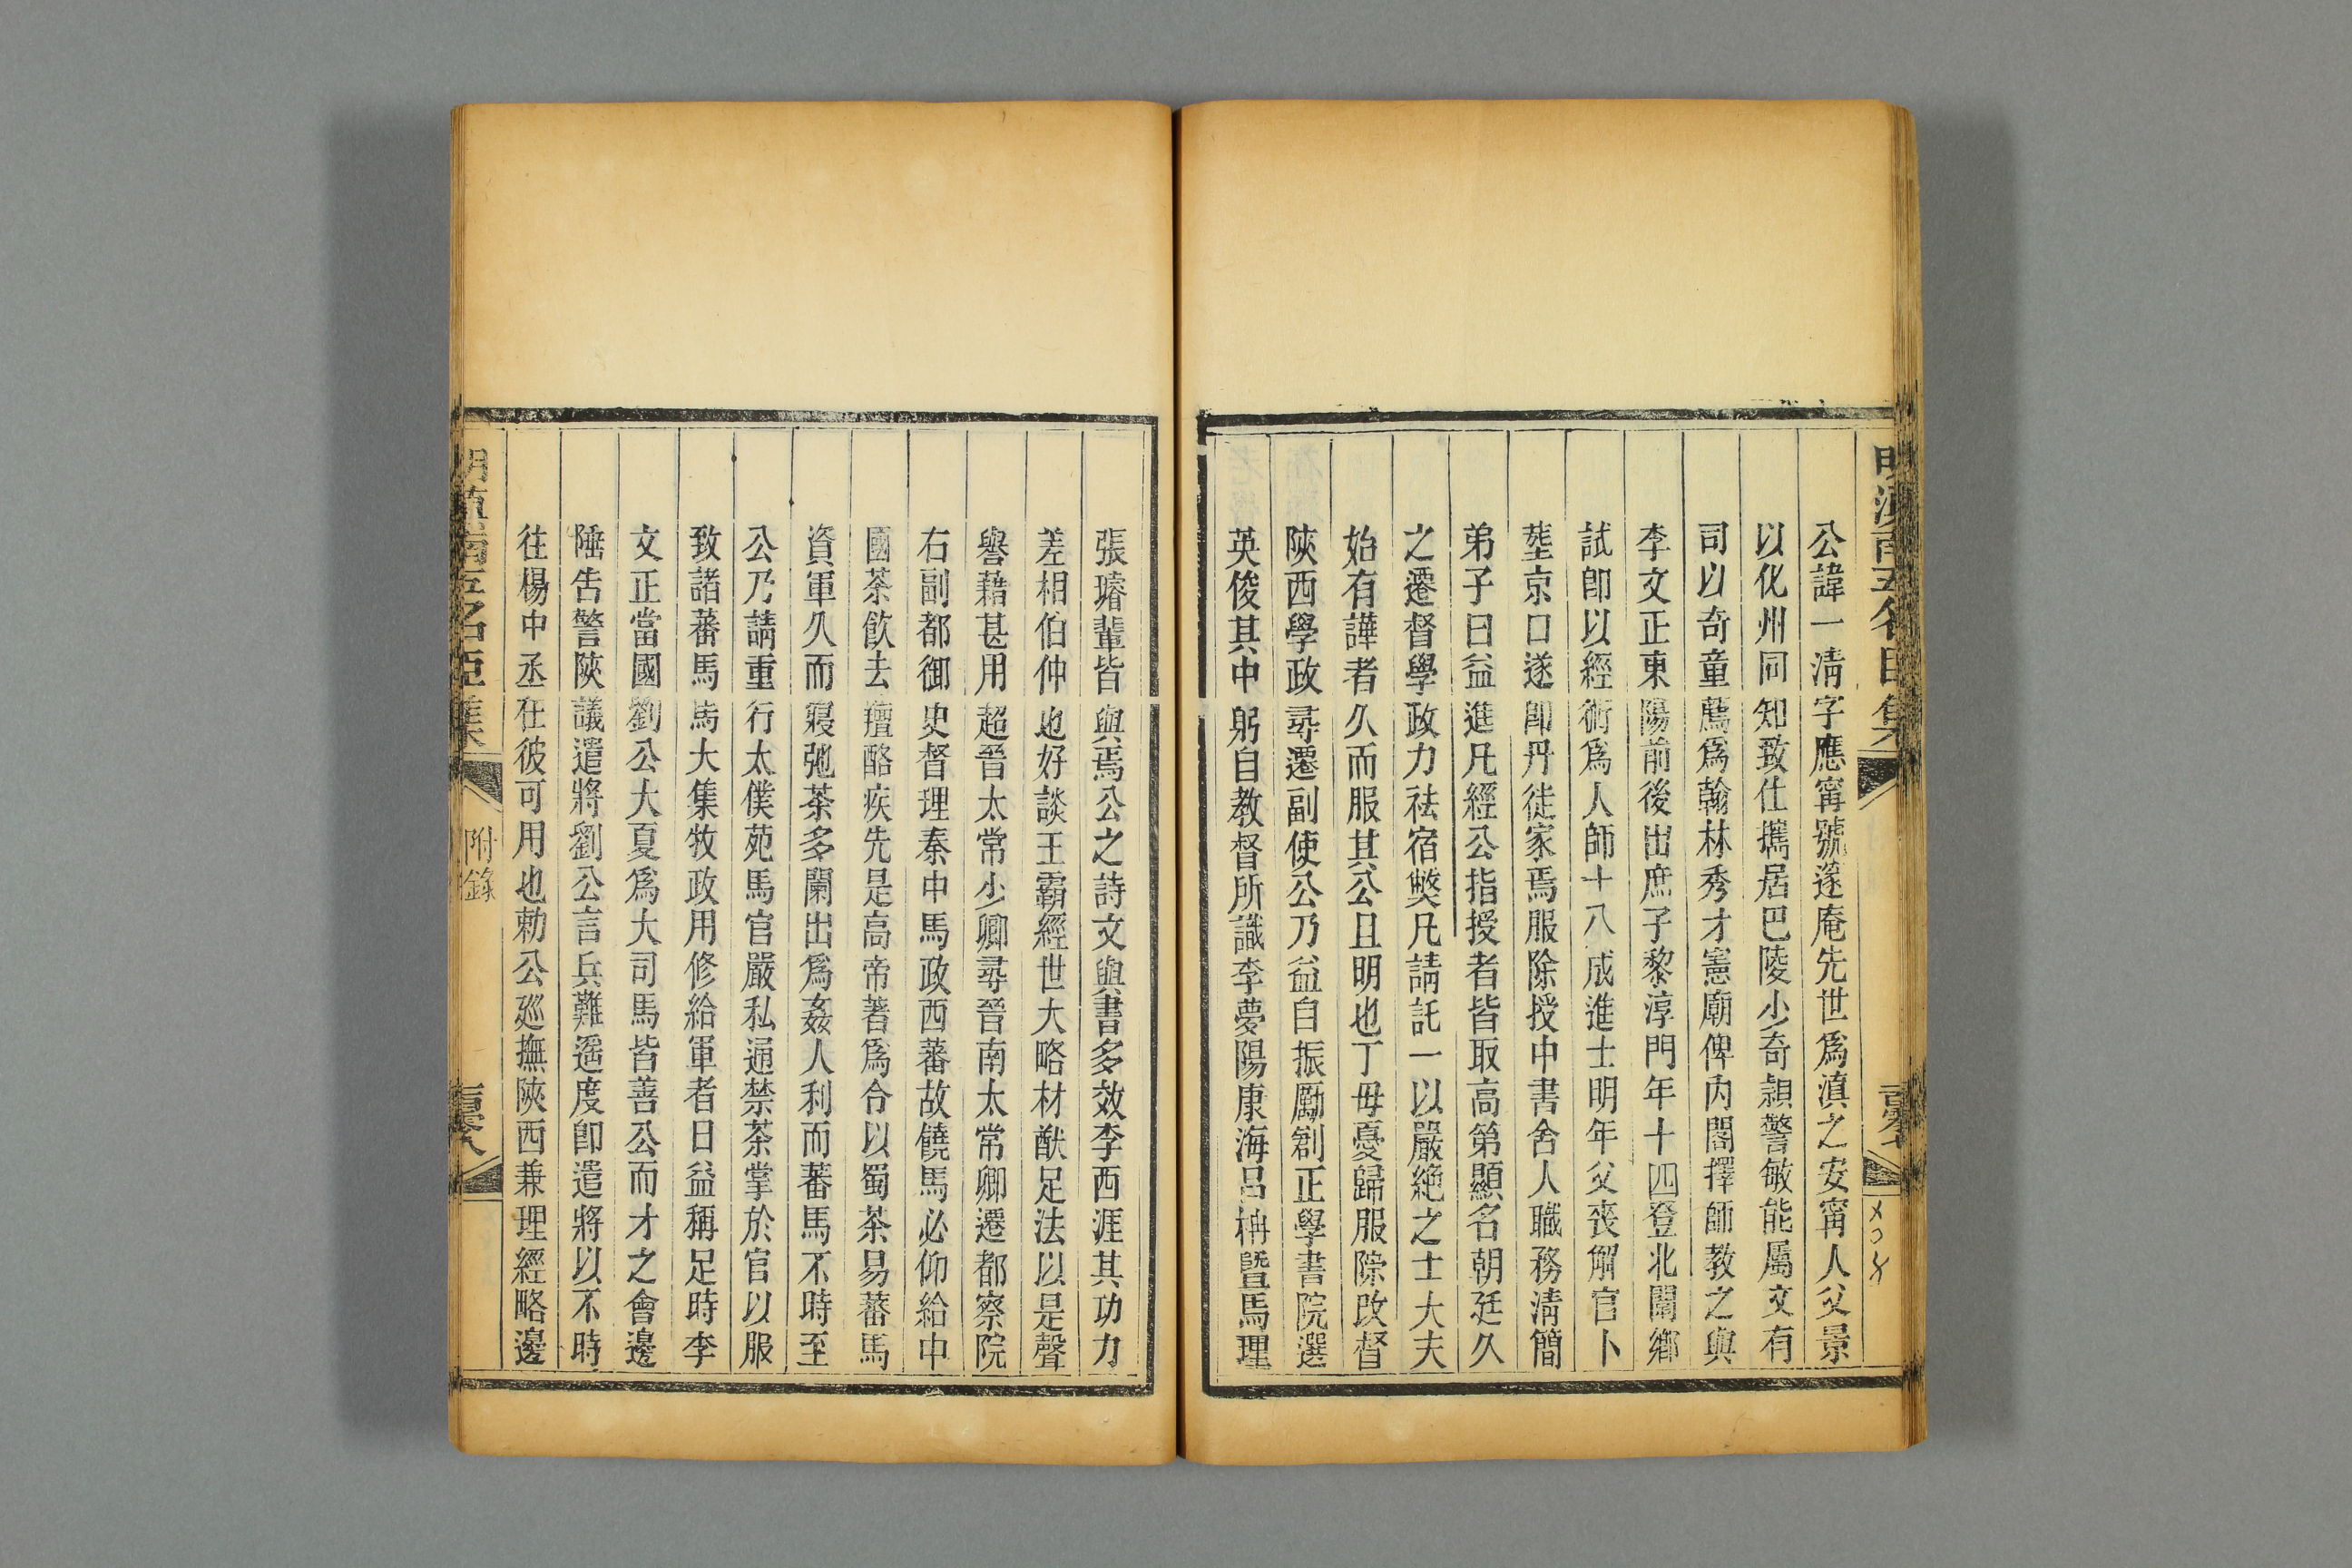 公諱一清字應甯號邃庵先世爲滇之安甯人父景
以化州同知致仕攜居巴陵少奇穎警敏能屬文有
司以奇童薦爲翰林秀才憲廟俾內閣擇師教之與
李文正東陽前後出庶子黎淳門年十四登北闈鄉
試即以經術爲人師十八成進士明年父喪解官卜
塟京口遂即丹徒家焉服除授中書舍人職務清簡
弟子日益進凡經公指授者皆取高第顯名朝廷久
之遷督學政力祛宿獘凡請託一以嚴絶之士大夫
始有譁者久而服其公且明也丁母憂歸服除改督
陝西學政尋遷副使公乃益自振厲創正學書院選
英俊其中躬自教督所識李夢陽康海呂柟曁馬理
張璿輩皆與焉公之詩文與書多效李西涯其功力
差相伯仲也好談王霸經世大略材猷足法以是聲
譽藉甚用超晉太常少卿尋晉南太常卿遷都察院
右副都御史督理秦中馬政西蕃故饒馬必仰給中
國茶飲去羶酪疾先是高帝著爲令以蜀茶易蕃馬
資軍久而寢弛茶多闌出爲姦人利而蕃馬不時至
公乃請重行太僕苑馬官嚴私通禁茶掌於官以服
致諸蕃馬馬大集牧政用修給軍者日益稱足時李
文正當國劉公大夏爲大司馬皆善公而才之會邊
陲告警陝議遣將劉公言兵難遥度即遣將以不時
往楊中丞在彼可用也勅公廵撫陝西兼理經略邊
明滇南五名臣集
附錄